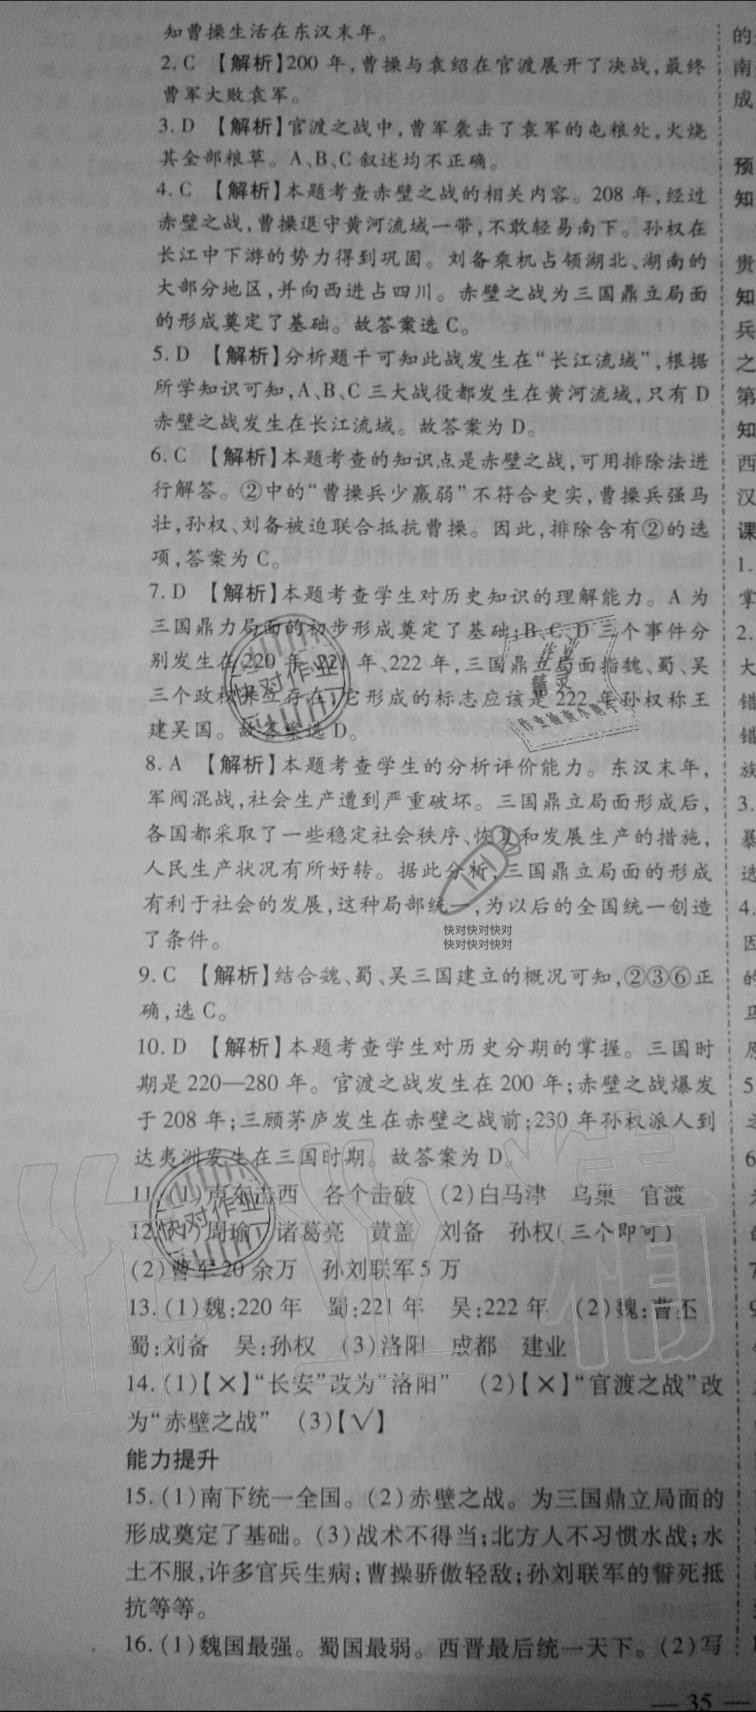 知曹操生活在东汉末年。
2. C 【解析】200 年,曹操与袁绍在官渡展开了决战,最终
曹军大败袁军。
3. D 【解析】官渡之战中,曹军袭击了袁军的屯粮处,火烧
其全部粮草。A、B、C 叙述均不正确。
4. C 【解析】本题考查赤壁之战的相关内容。208 年,经过
赤壁之战,曹操退守黄河流域一带,不敢轻易南下。孙权在
长江中下游的势力得到巩固。刘备乘机占领湖北、湖南的
大部分地区,并向西进占四川。赤壁之战为三国鼎立局面
的形成奠定了基础。故答案选 C。
5. D 【解析】分析题干可知此战发生在“长江流域”,根据
所学知识可知,A、B、C 三大战役都发生在黄河流域,只有 D
赤壁之战发生在长江流域。故答案为 D。
6. C 【解析】本题考查的知识点是赤壁之战,可用排除法进
行解答。②中的“曹操兵少羸弱”不符合史实,曹操兵强马
壮,孙权、刘备被迫联合抵抗曹操。因此,排除含有②的选
项,答案为 C。
7. D 【解析】本题考查学生对历史知识的理解能力。A 为
三国鼎力局面的初步形成奠定了基础;B、C、D 三个事件分
别发生在 220 年、221 年、222 年,三国鼎立局面指魏、蜀、吴
三个政权并立存在,它形成的标志应该是 222 年孙权称王
建吴国。故答案选 D。
8. A 【解析】本题考查学生的分析评价能力。东汉末年,
军阀混战,社会生产遭到严重破坏。三国鼎立局面形成后,
各国都采取了一些稳定社会秩序、恢复和发展生产的措施,
人民生产状况有所好转。据此分析,三国鼎立局面的形成
有利于社会的发展,这种局部统一,为以后的全国统一创造
了条件。
9. C 【解析】结合魏、蜀、吴三国建立的概况可知,②③⑥正
确,选 C。
10. D 【解析】本题考查学生对历史分期的掌握。三国时
期是 220—280 年。官渡之战发生在 200 年;赤壁之战爆发
于 208 年;三顾茅庐发生在赤壁之战前;230 年孙权派人到
达夷洲发生在三国时期。故答案为 D。
11. (1)声东击西 各个击破 (2)白马津 乌巢 官渡
12. (1)周瑜 诸葛亮 黄盖 刘备 孙权(三个即可)
(2)曹军 20 余万 孙刘联军 5 万
13. (1)魏:220 年 蜀:221 年 吴:222 年 (2)魏:曹丕
蜀:刘备 吴:孙权 (3)洛阳 成都 建业
14. (1)【×】“长安”改为“洛阳” (2)【×】“官渡之战”改
为“赤壁之战” (3)【√】
能力提升
15. (1)南下统一全国。(2)赤壁之战。为三国鼎立局面的
形成奠定了基础。(3)战术不得当;北方人不习惯水战;水
土不服,许多官兵生病;曹操骄傲轻敌;孙刘联军的誓死抵
抗等等。
16. (1)魏国最强。蜀国最弱。西晋最后统一天下。(2)写
— 35 —
的
南
成
预
知
贵
知
兵
之
第
知
西
汉
课
1.
掌
2.
大
错
错
族
3.
暴
选
4.
因
的
马
原
5
快对作业
作业精灵
快对快对快对
快对快对快对
快对作业
作业精